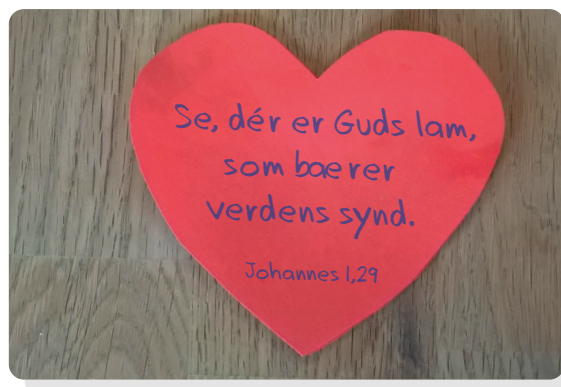 Se, dér er Guds lam,
som bærer
verdens synd.
Johannes 1,29